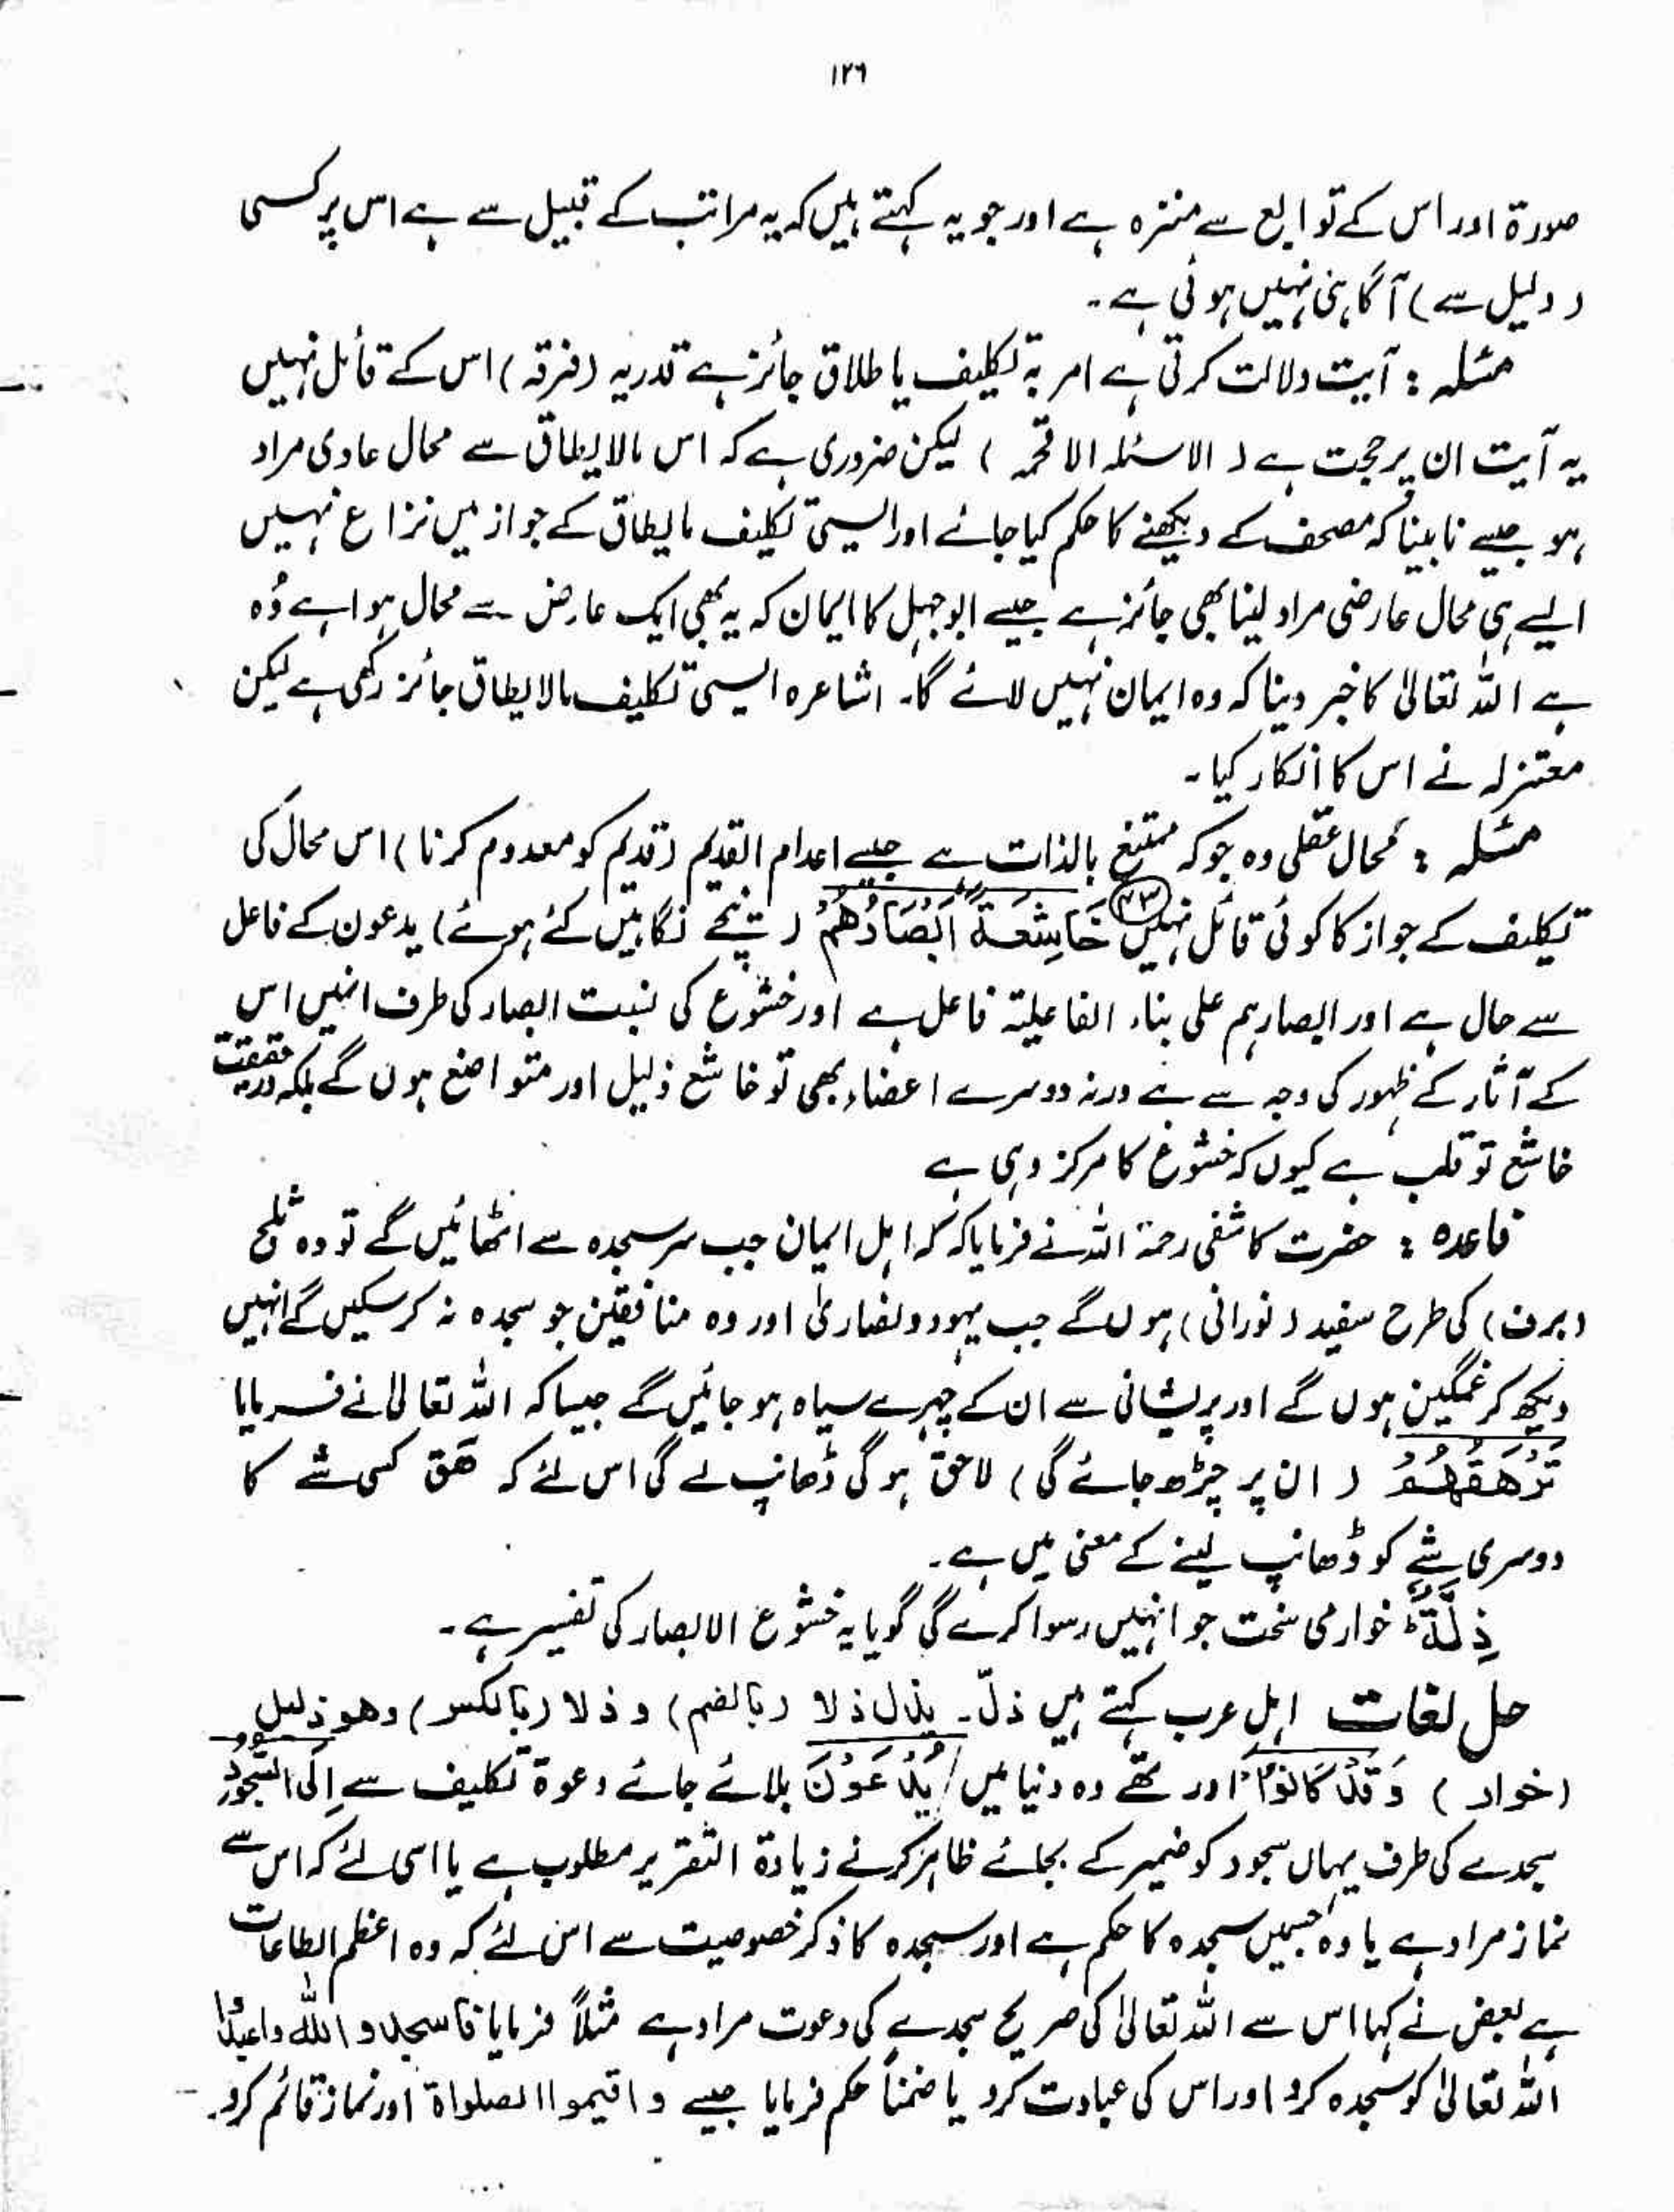 ۱۲۶
صورۃ اور اس کے توابع سے منزہ ہے اور جو یہ کہتے ہیں کہ یہ مراتب کے قبیل سے ہے اس پر کسی
( دلیل سے ) آگاہی نہیں ہوئی ہے ۔
مسئلہ : آیت دلالت کرتی ہے امر بہ تکلیف یا طلاق جائز ہے قدریہ (فرقہ) اس کے قائل نہیں
یہ آیت ان پر حجت ہے ( الاسئلہ الاقحمہ ) لیکن ضروری ہے کہ اس مالایطاق سے محال عادی مراد
ہو جیسے نابینا کہ مصحف کے دیکھنے کا حکم کیا جائے اور ایسی تکلیف مالیطاق کے جواز میں نزاع نہیں
ایسے ہی محال عارضی مراد لینا بھی جائز ہے جیسے ابوجہل کا ایمان کہ یہ بھی ایک عارض سے محال ہوا ہے وُہ
ہے اللہ تعالیٰ کا خبر دینا کہ وہ ایمان نہیں لائے گا۔ اشاعرہ ایسی تکلیف مالایطاق جائز رکھی ہے لیکن
معتزلہ نے اس کا انکار کیا ۔
مسئلہ : محال عقلی وہ جو کہ ممتنع بالذات ہے جیسے اعدام القدیم (قدیم کو معدوم کرنا) اس محال کی
تکلیف کے جواز کا کوئی قائل نہیں ۴۳ خَاشِعَةً اَبْصَارُهُمْ ( نیچے نگاہیں کئے ہوئے) یدعون کے فاعل
سے حال ہے اور ابصارہم علی بناء الفاعلیۃ فاعل ہے اور خشوع کی نسبت ابصار کی طرف انہیں اس
کے آثار کے ظہور کی وجہ سے ہے ورنہ دوسرے اعضاء بھی تو خاشع ذلیل اور متواضع ہوں گے بلکہ درحقیقت
خاشع تو قلب ہے کیوں کہ خشوع کا مرکز وہی ہے
فاعدہ : حضرت کاشفی رحمۃ اللہ نے فرمایا کہ کہ اہل ایمان جب سر سجدہ سے اٹھائیں گے تو وہ ثلج
(برف) کی طرح سفید (نورانی) ہوں گے جب یہود و نصاریٰ اور وہ منافقین جو سجدہ نہ کر سکیں گے انہیں
دیکھ کر غمگین ہوں گے اور پریشانی سے ان کے چہرے سیاہ ہو جائیں گے جیسا کہ اللہ تعالیٰ نے فرمایا
تَرْهَقُهُمْ ( ان پر چڑھ جائے گی ) لاحق ہو گی ڈھانپ لے گی اس لئے کہ ھَق کسی شے کا
دوسری شے کو ڈھانپ لینے کے معنی میں ہے ۔
ذِلَّةٌ ط خواری سخت جو انہیں رسوا کرے گی گویا یہ خشوع الابصار کی تفسیر ہے ۔
حل لغات اہل عرب کہتے ہیں ذلّ۔ یذل ذلا (بالضم) و ذلا (بالکسر) وھو ذلیل
(خوار ) وَقَدْ كَانُوْا اور تھے وہ دنیا میں يُدْعَوْنَ بلائے جائے دعوۃ تکلیف سے اِلَى السُّجُوْدِ
سجدے کی طرف یہاں سجود کو ضمیر کے بجائے ظاہر کرنے زیادۃ التقریر مطلوب ہے یا اسی لئے کہ اس سے
نماز مراد ہے یا وہ جسمیں سجدہ کا حکم ہے اور سجدہ کا ذکر خصوصیت سے اس لئے کہ وہ اعظم الطاعات
ہے بعض نے کہا اس سے اللہ تعالیٰ کی صریح سجدے کی دعوت مراد ہے مثلاً فرمایا فاسجدوا للہ واعبدوا
اللہ تعالیٰ کو سجدہ کرو اور اس کی عبادت کرو یا ضمناً حکم فرمایا جیسے و اقیموا الصلواۃ اور نماز قائم کرو۔